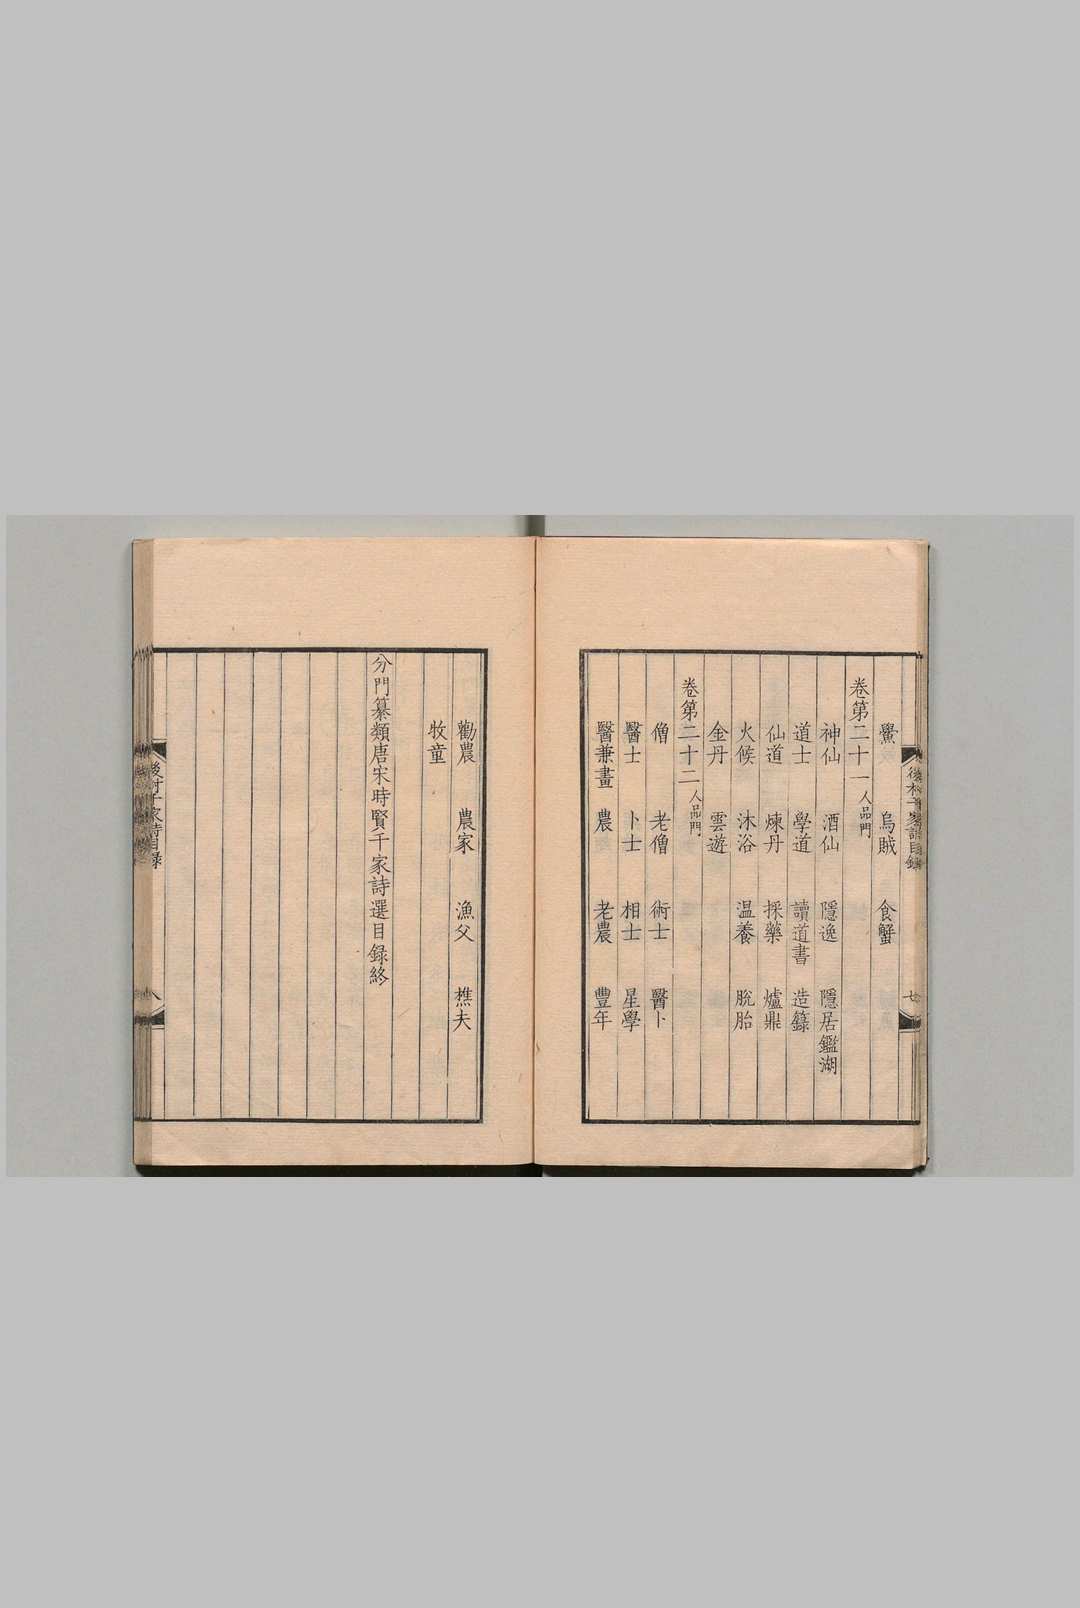 鱟　烏賊　食蟹
卷第二十一人品門
神仙　酒仙　隱逸　隱居鑑湖
道士　學道　讀道書　造籙
仙道　煉丹　採藥　爐鼎
火候　沐浴　温養　脫胎
金丹　雲遊
卷第二十二人品門
僧　老僧　術士　醫卜
醫士　卜士　相士　星學
醫兼畫　農　老農　豐年
勸農　農家　漁父　樵夫
牧童
分門纂類唐宋時賢千家詩選目録終
後村千家詩目録